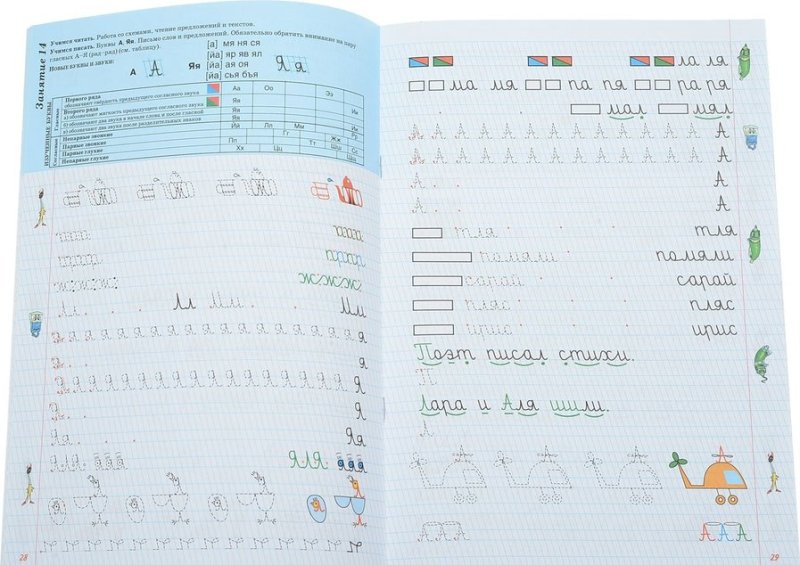 Занятие 14
Учимся читать. Работа со схемами, чтение предложений и текстов.
Учимся писать. Буквы А, Яя. Письмо слов и предложений. Обязательно обратить внимание на пару
гласных А–Я (рад–ряд) (см. таблицу).
НОВЫЕ БУКВЫ И ЗВУКИ:
А А Яя Яя
[а] мя ня ся
[йа] яр яв ял
[йа] ая оя
[йа] сья бъя
ИЗУЧЕННЫЕ БУКВЫ
Гласные
Первого ряда
обозначают твёрдость предыдущего согласного звука
Аа Оо Ээ
Второго ряда
а) обозначают мягкость предыдущего согласного звука
Яя Ии
б) обозначают два звука в начале слова и после гласной
Яя
в) обозначают два звука после разделительных знаков
Яя Ии
Согласные
Непарные звонкие
Йй Лл Мм Рр
Парные звонкие
Гг Жж
Парные глухие
Пп Тт Шш Сс
Непарные глухие
Хх Цц Щщ
Лл Мм
Мм
я
я
Я
Я
Яя
ЯЛЯ яяя
28
ла ля
ма мя па пя ра ря
мал мял
А
А
А
А
тля тля
помяли помяли
сарай сарай
пляс пляс
ирис ирис
Поэт писал стихи.
П
Лара и Аля шили.
Л
ААА ААА
29